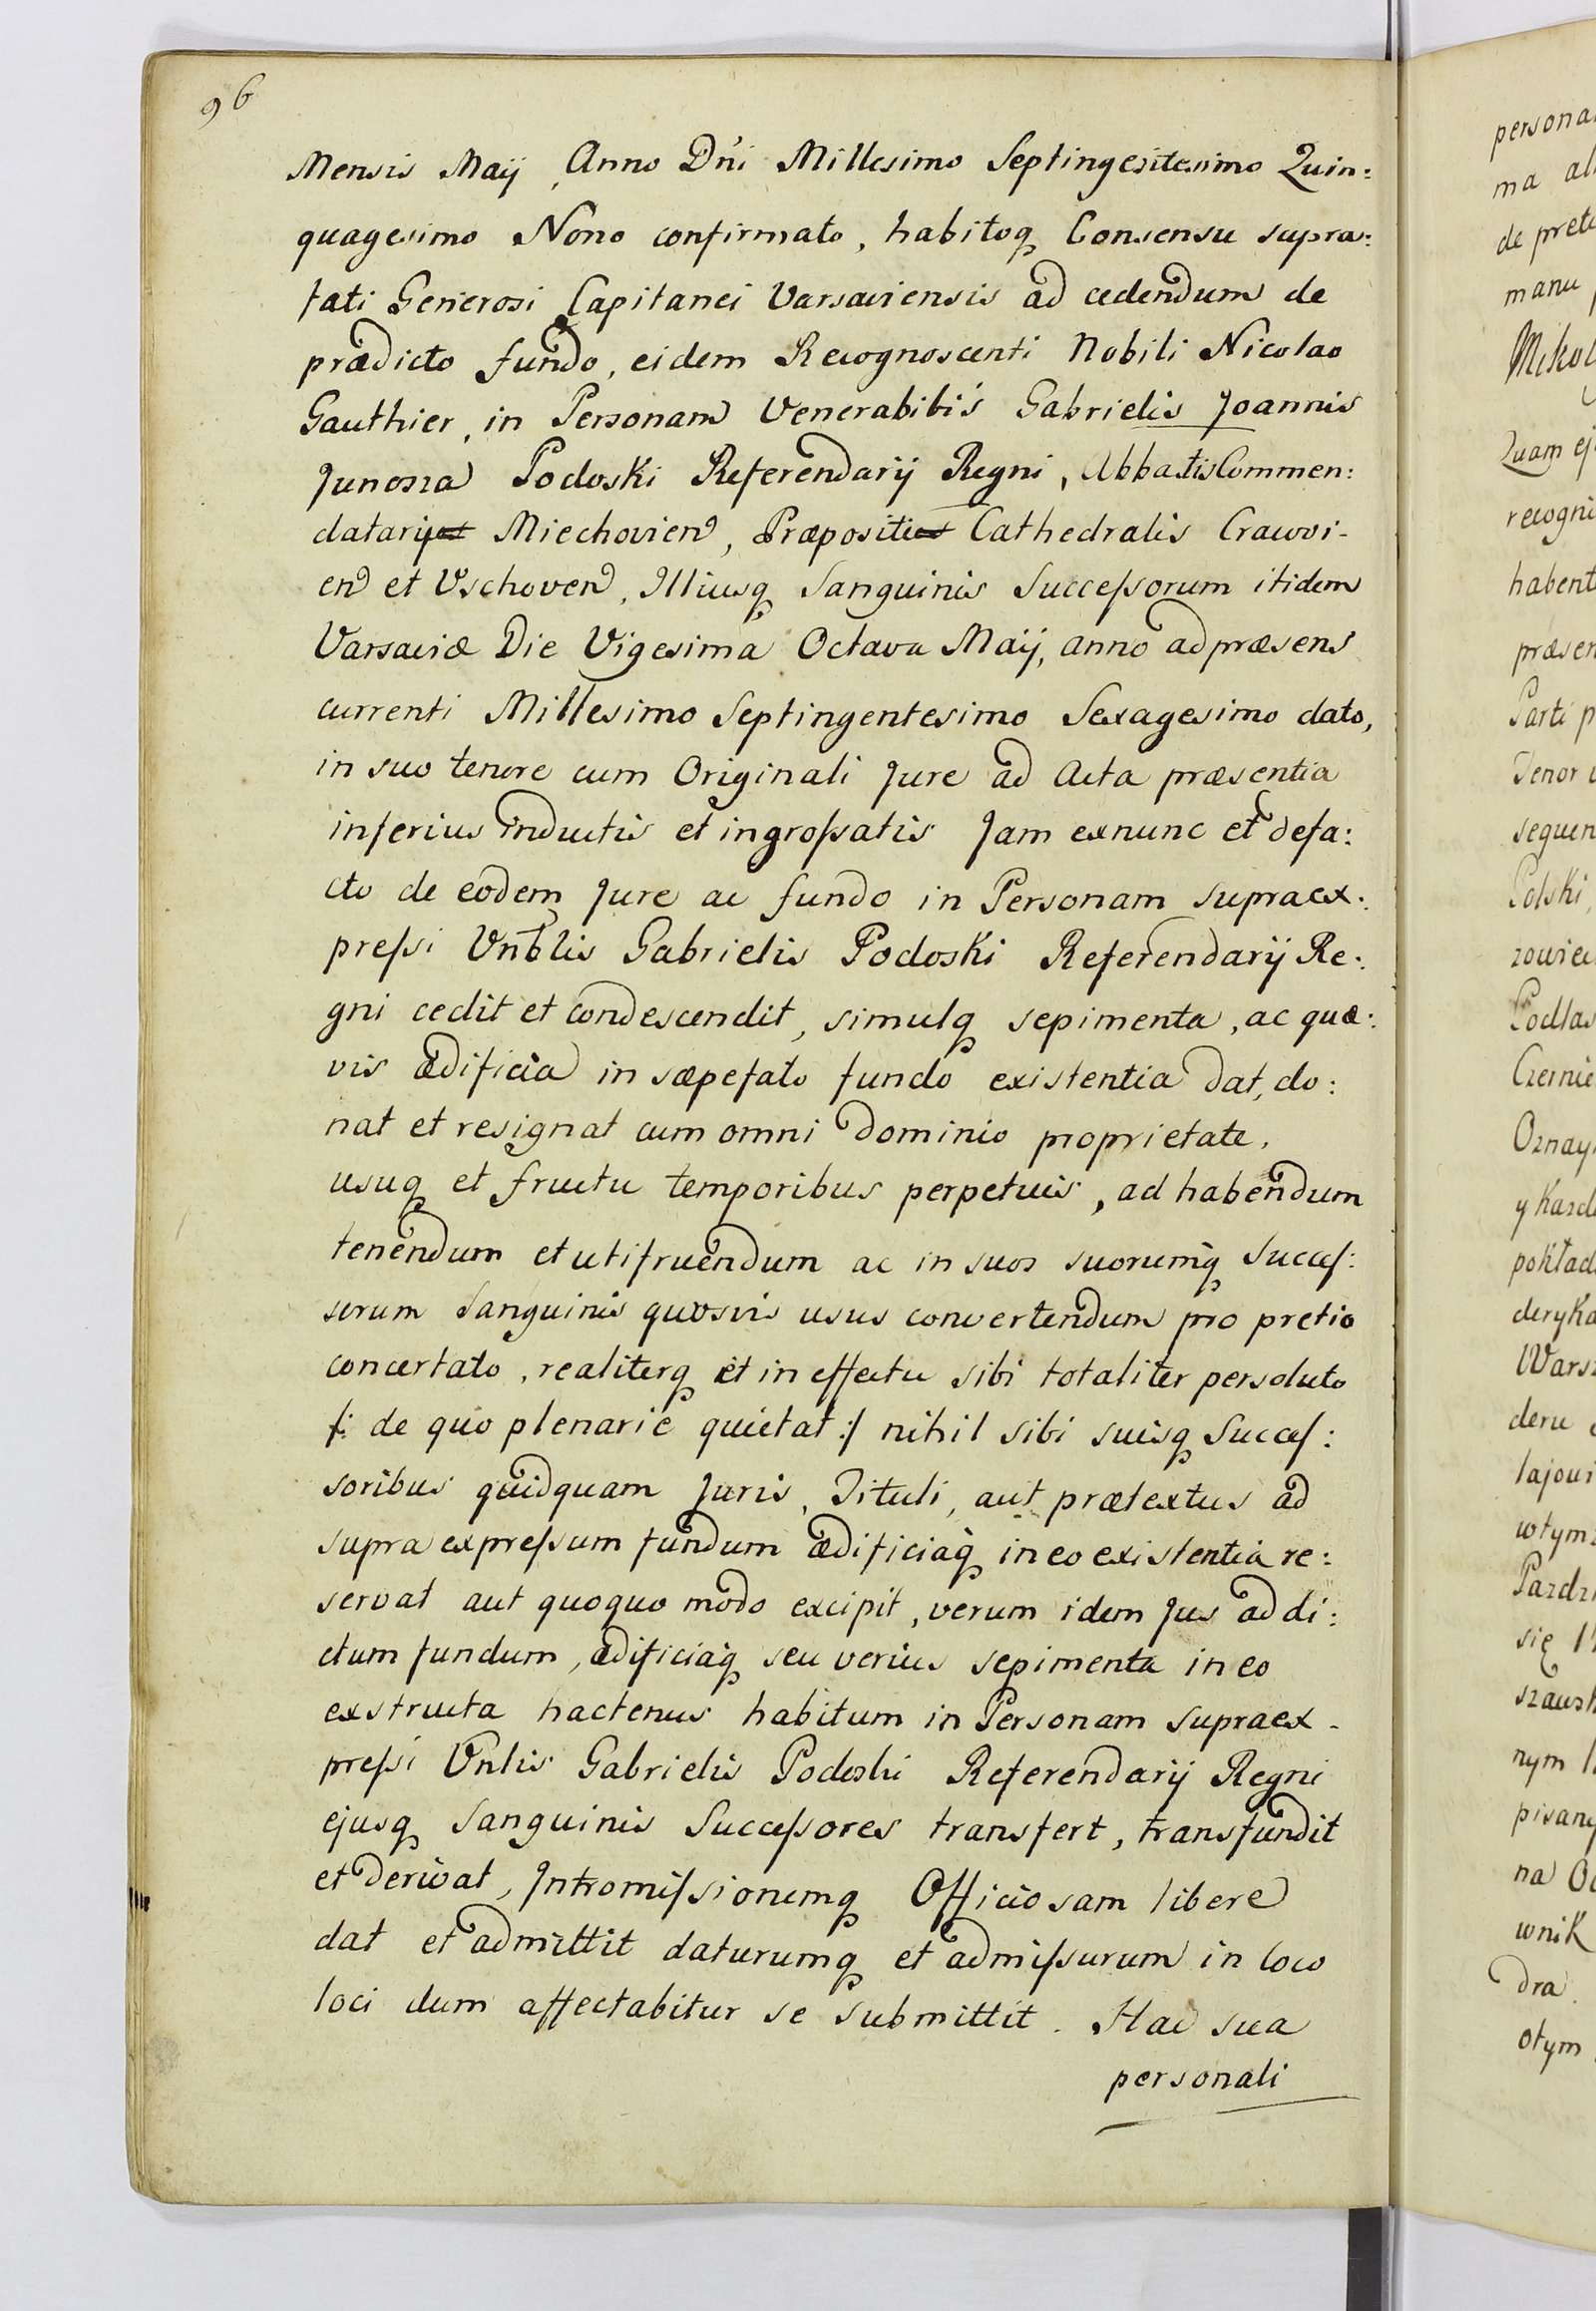 96
Mensis Maij, Anno Dńi Millesimo Septingesitesimo Quin:
quagesimo Nono confirmato, habitoq Consensu supra:
fati Generosi Capitanei Varsaviensis ad cedendum de
prædicto fundo, eidem Recognoscenti Nobili Nicolao
Gauthier, in Personam Venerabibis Gabrielis Joannis
Junosza Podoski Referendarij Regni, Abbatis Commen:
datarij Miechovien, Præpositi Cathedralis Cracovi-
en et Vschoven, Illiusq Sanguinis Successorum itidem
Varsaviæ Die Vigesima Octava Maij, anno ad præsens
currenti Millesimo Septingentesimo Sexagesimo dato,
in suo tenore cum Originali Jure ad Acta præsentia
inferius inductis et ingrossatis Jam exnunc et defa:
cto de eodem Jure ac fundo in Personam supraex:
pressi Vnblis Gabrielis Podoski Referendarij Re:
gni cedit et condescendit, simulq sepimenta, ac quæ:
vis ædificia in sæpefato fundo existentia dat, do:
nat et resignat cum omni dominio proprietate,
usuq et fructu temporibus perpetuis, ad habendum
tenendum et utifruendum ac in suos suorumq Succes:
sorum Sanguinis quosvis usus convertendum pro pretio
concertato, realiterq et in effectu sibi totaliter persoluto
/: de quo plenarie quietat :/ nihil sibi suisq Succes:
soribus quidquam Juris, Tituli, aut prætextus ad
supra expressum fundum ædificiaq in eo existentia re:
servat aut quoquo modo excipit, verum idem Jus ad di:
ctum fundum, ædificiaq seu verius sepimenta in eo
exstructa hactenus habitum in Personam supraex-
pressi Vnlis Gabrielis Podoski Referendarij Regni
ejusq Sanguinis Successores transfert, transfundit
et derivat, Intromissionemq Officiosam libere
dat et admittit daturumq et admissurum in loco
loci dum affectabitur se submittit. Hac sua
personali
persona
ma
de prete
manu
Mikol
Quam ej
recogni
habent
præsen
Parti p
Tenor
sequen
Polski,
zowiec
Podlas
Czernie
Oznay
y Kazd
pokład
deryka
Wars
deru
lajowi
wtym
Pazdzi
się
szawsk
nym
pisany
na
wnik
dra.
otym